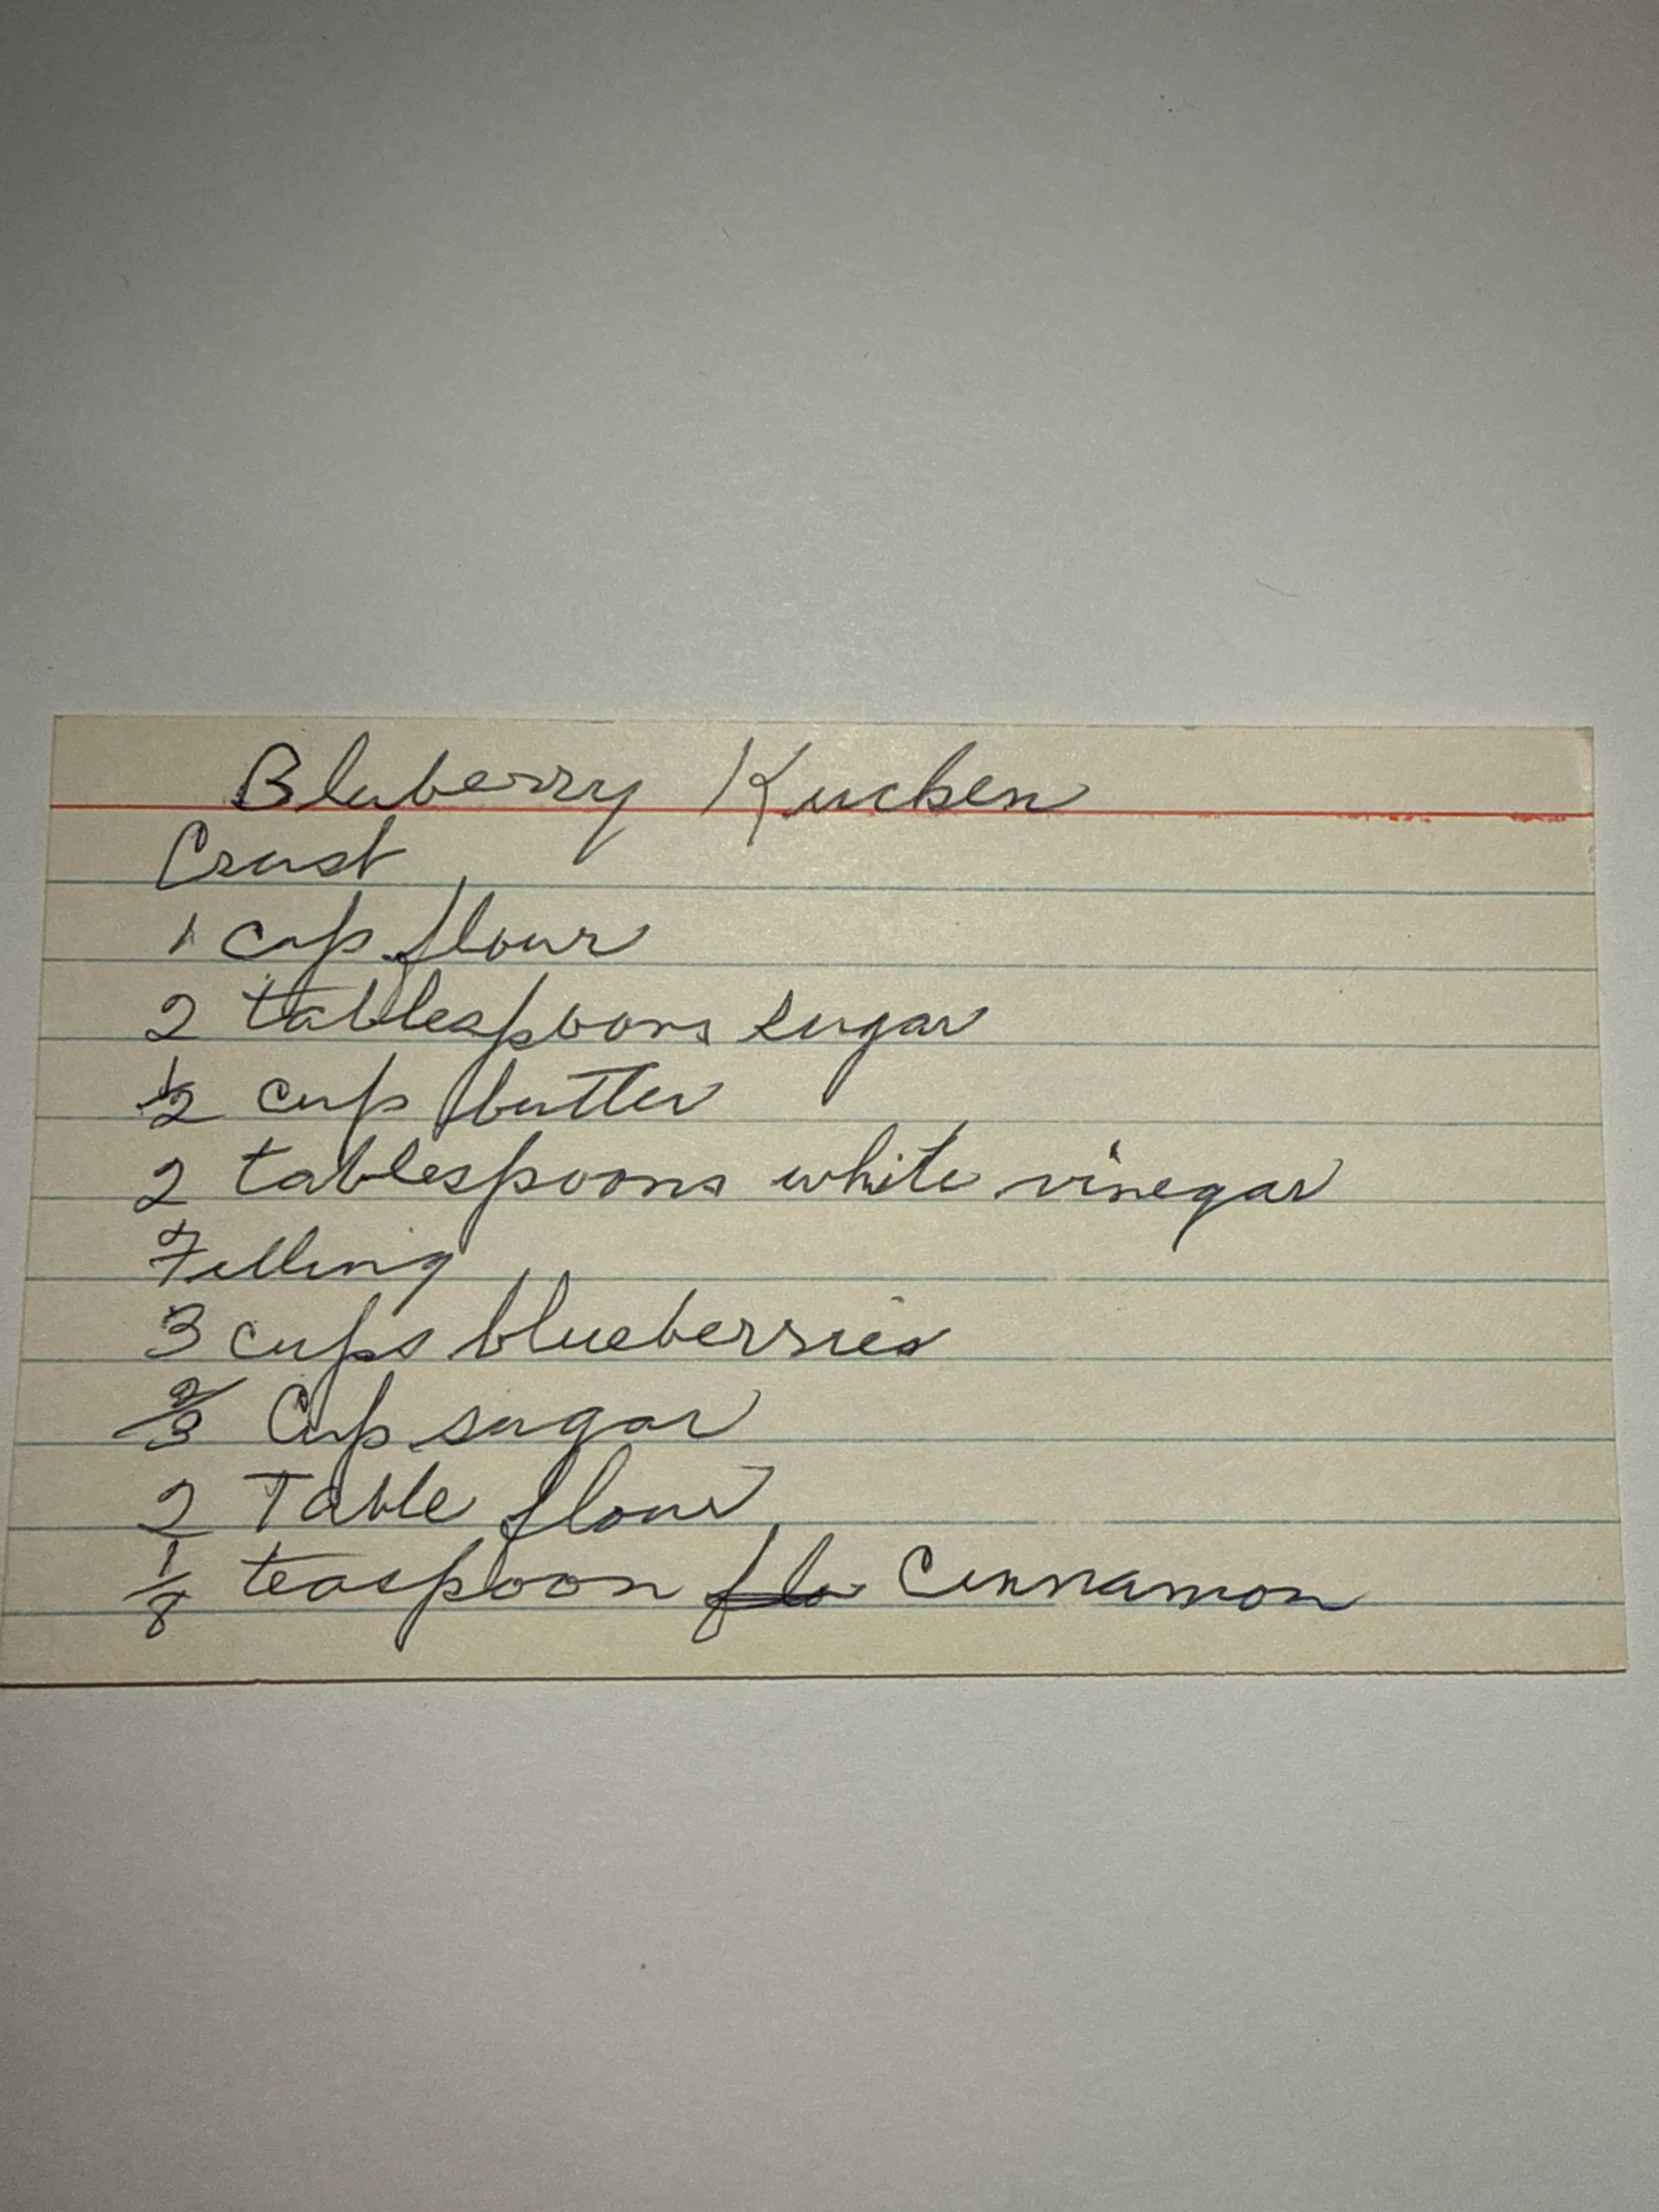 Bluberry Kuchen
Crust
1 cup flour
2 tablespoons sugar
1/2 cup butter
2 tablespoons white vinegar
Filling
3 cups blueberries
2/3 Cup sugar
2 Table flour
1/8 teaspoon flo Cinnamon